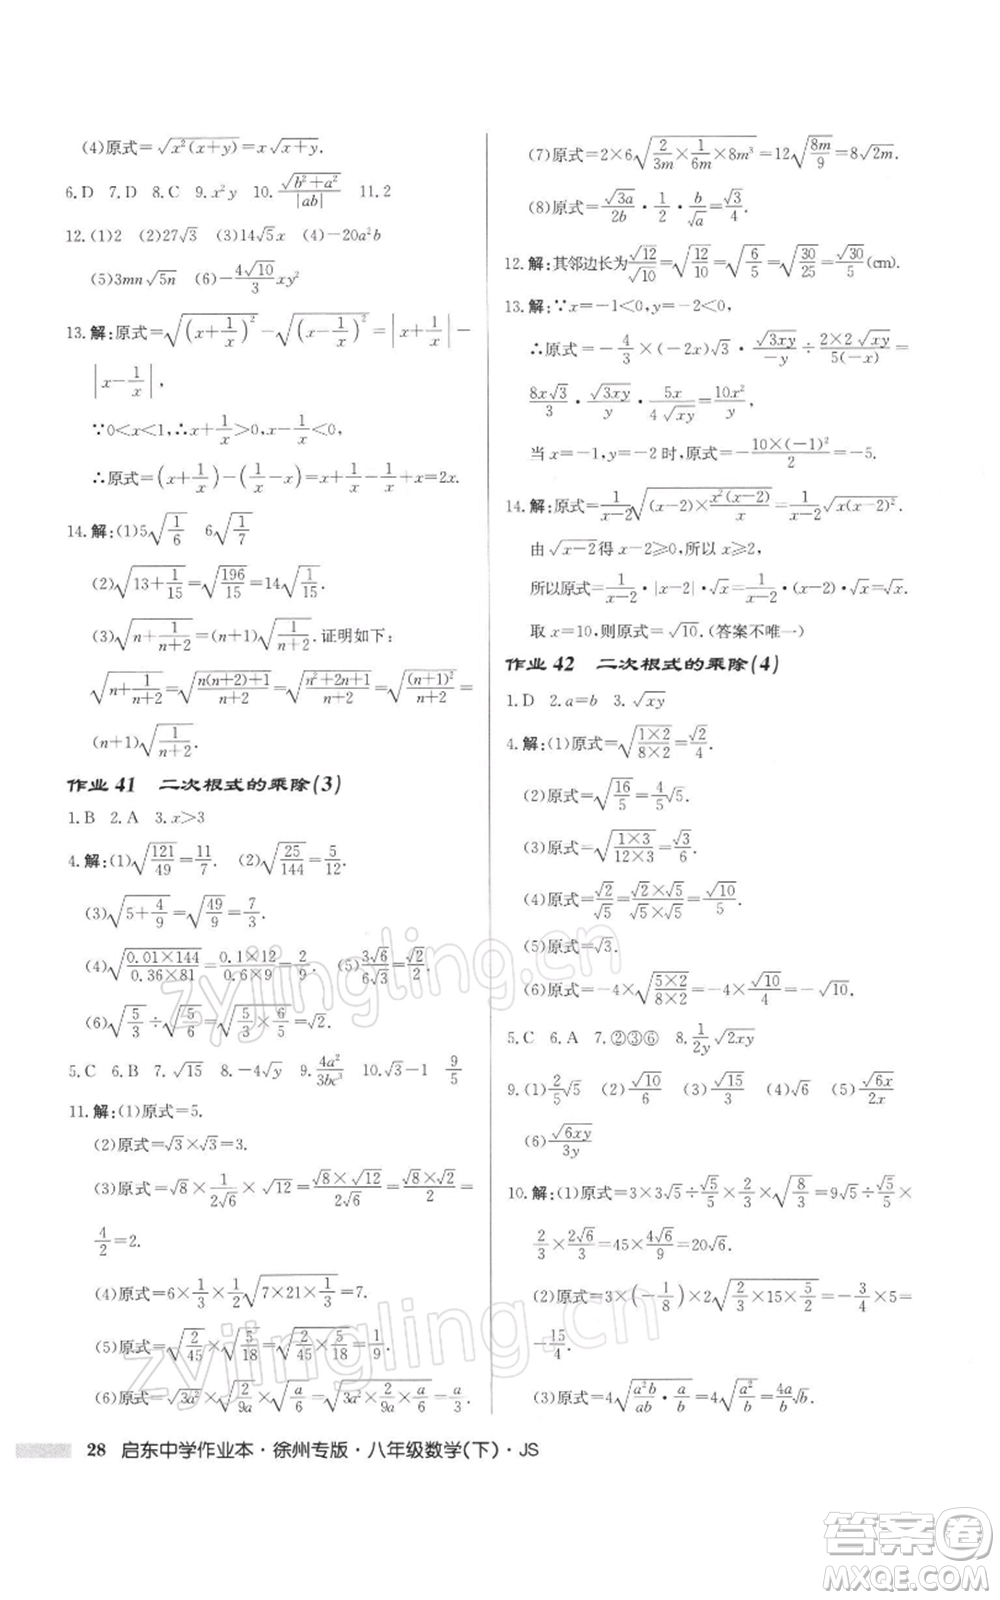 (4)原式=√(x²(x+y))=x√(x+y).
6.D 7.D 8.C 9.x²y 10.√(b²+a²)/|ab| 11.2
12.(1)2 (2)27√3 (3)14√5x (4)-20a²b
(5)3mn√(5n) (6)-(4√10/3)xy²
13.解:原式=√((x+1/x)²)-√((x-1/x)²)=|x+1/x|-
|x-1/x|,
∵0<x<1,∴x+1/x>0,x-1/x<0,
∴原式=(x+1/x)-(1/x-x)=x+1/x-1/x+x=2x.
14.解:(1)5√(1/6) 6√(1/7)
(2)√(13+1/15)=√(196/15)=14√(1/15).
(3)√(n+1/(n+2))=(n+1)√(1/(n+2)).证明如下:
√(n+1/(n+2))=√((n(n+2)+1)/(n+2))=√((n²+2n+1)/(n+2))=√((n+1)²/(n+2))=
(n+1)√(1/(n+2)).
作业 41 二次根式的乘除(3)
1.B 2.A 3.x>3
4.解:(1)√(121/49)=11/7. (2)√(25/144)=5/12.
(3)√(5+4/9)=√(49/9)=7/3.
(4)√((0.01×144)/(0.36×81))=(0.1×12)/(0.6×9)=2/9. (5)3√6/6√3=√2/2.
(6)√(5/3)÷√(5/6)=√(5/3×6/5)=√2.
5.C 6.B 7.√15 8.-4√y 9.4a²/3bc³ 10.√3-1 9/5
11.解:(1)原式=5.
(2)原式=√3×√3=3.
(3)原式=√8×1/(2√6)×√12=(√8×√12)/(2√6)=(√8×√2)/2=
4/2=2.
(4)原式=6×1/3×1/2×√(7×21×1/3)=7.
(5)原式=√(2/45)×√(5/18)=√(2/45×5/18)=1/9.
(6)原式=√(3a²)×√(2/9a)×√(a/6)=√(3a²×2/9a×a/6)=a/3.
(7)原式=2×6√(2/3m×1/6m×8m³)=12√(8m/9)=8√(2m).
(8)原式=√(3a)/2b·1/2·b/√a=√3/4.
12.解:其邻边长为√12/√10=√(12/10)=√(6/5)=√(30/25)=√30/5(cm).
13.解:∵x=-1<0,y=-2<0,
∴原式=-4/3×(-2x)√3·√(3xy)/(-y)÷(2×2√(xy))/(5(-x))=
(8x√3)/3·√(3xy)/y·5x/(4√(xy))=10x²/y,
当x=-1,y=-2时,原式=-(10×(-1)²)/2=-5.
14.解:原式=1/(x-2)√((x-2)×x²(x-2)/x)=1/(x-2)√(x(x-2)²).
由√(x-2)=0,x-2≥0,所以x≥2,
所以原式=1/(x-2)·|x-2|·√x=1/(x-2)·(x-2)·√x=√x.
取x=10,则原式=√10.(答案不唯一)
作业 42 二次根式的乘除(4)
1.D 2.a=b 3.√(xy)
4.解:(1)原式=√((1×2)/(8×2))=√2/4.
(2)原式=√(16/5)=(4/5)√5.
(3)原式=√((1×3)/(12×3))=√3/6.
(4)原式=√2/√5=(√2×√5)/(√5×√5)=√10/5.
(5)原式=√3.
(6)原式=-4√((5×2)/(8×2))=-4×√10/4=-√10.
5.C 6.A 7.②③⑥ 8.(1/2y)√(2xy)
9.(1)(2/5)√5 (2)√10/6 (3)√15/3 (4)√a/a (5)√(6x)/2x
(6)√(6xy)/3y
10.解:(1)原式=3×3√5÷√5/5×2/3×√(8/3)=9√5÷√5/5×
2/3×2√6/3=45×4√6/9=20√6.
(2)原式=3×(-1/8)×2√(2/3×15×5/2)=-3/4×5=
-15/4.
(3)原式=4√(a²b/b·a/b)=4√(a²/b)=4×a/b√b.
28 启东中学作业本·徐州专版·八年级数学(下)·JS
zyjingling.cn
zyjingling.cn
答案圈
MXQE.COM